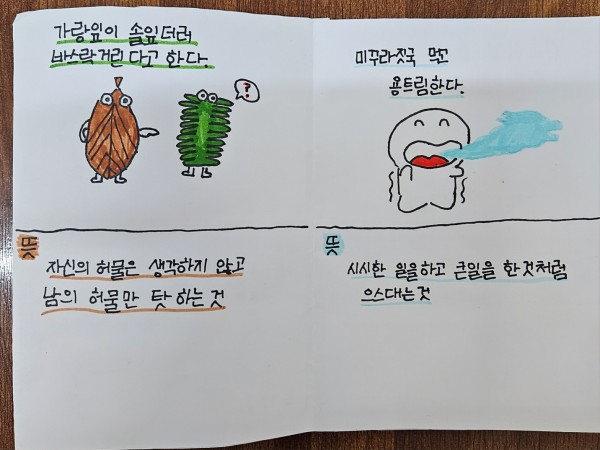 가랑잎이 솔잎더러
바스락거린다고 한다.
?
뜻
자신의 허물은 생각하지 않고
남의 허물만 탓하는 것
미꾸라짓국 먹고
용트림한다.
뜻
시시한 일을하고 큰일을 한것처럼
으스대는것